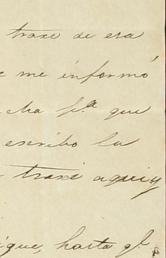 traxe de esa
me informó
cha pª que
escribo la
traxe aquy
que, hasta qf